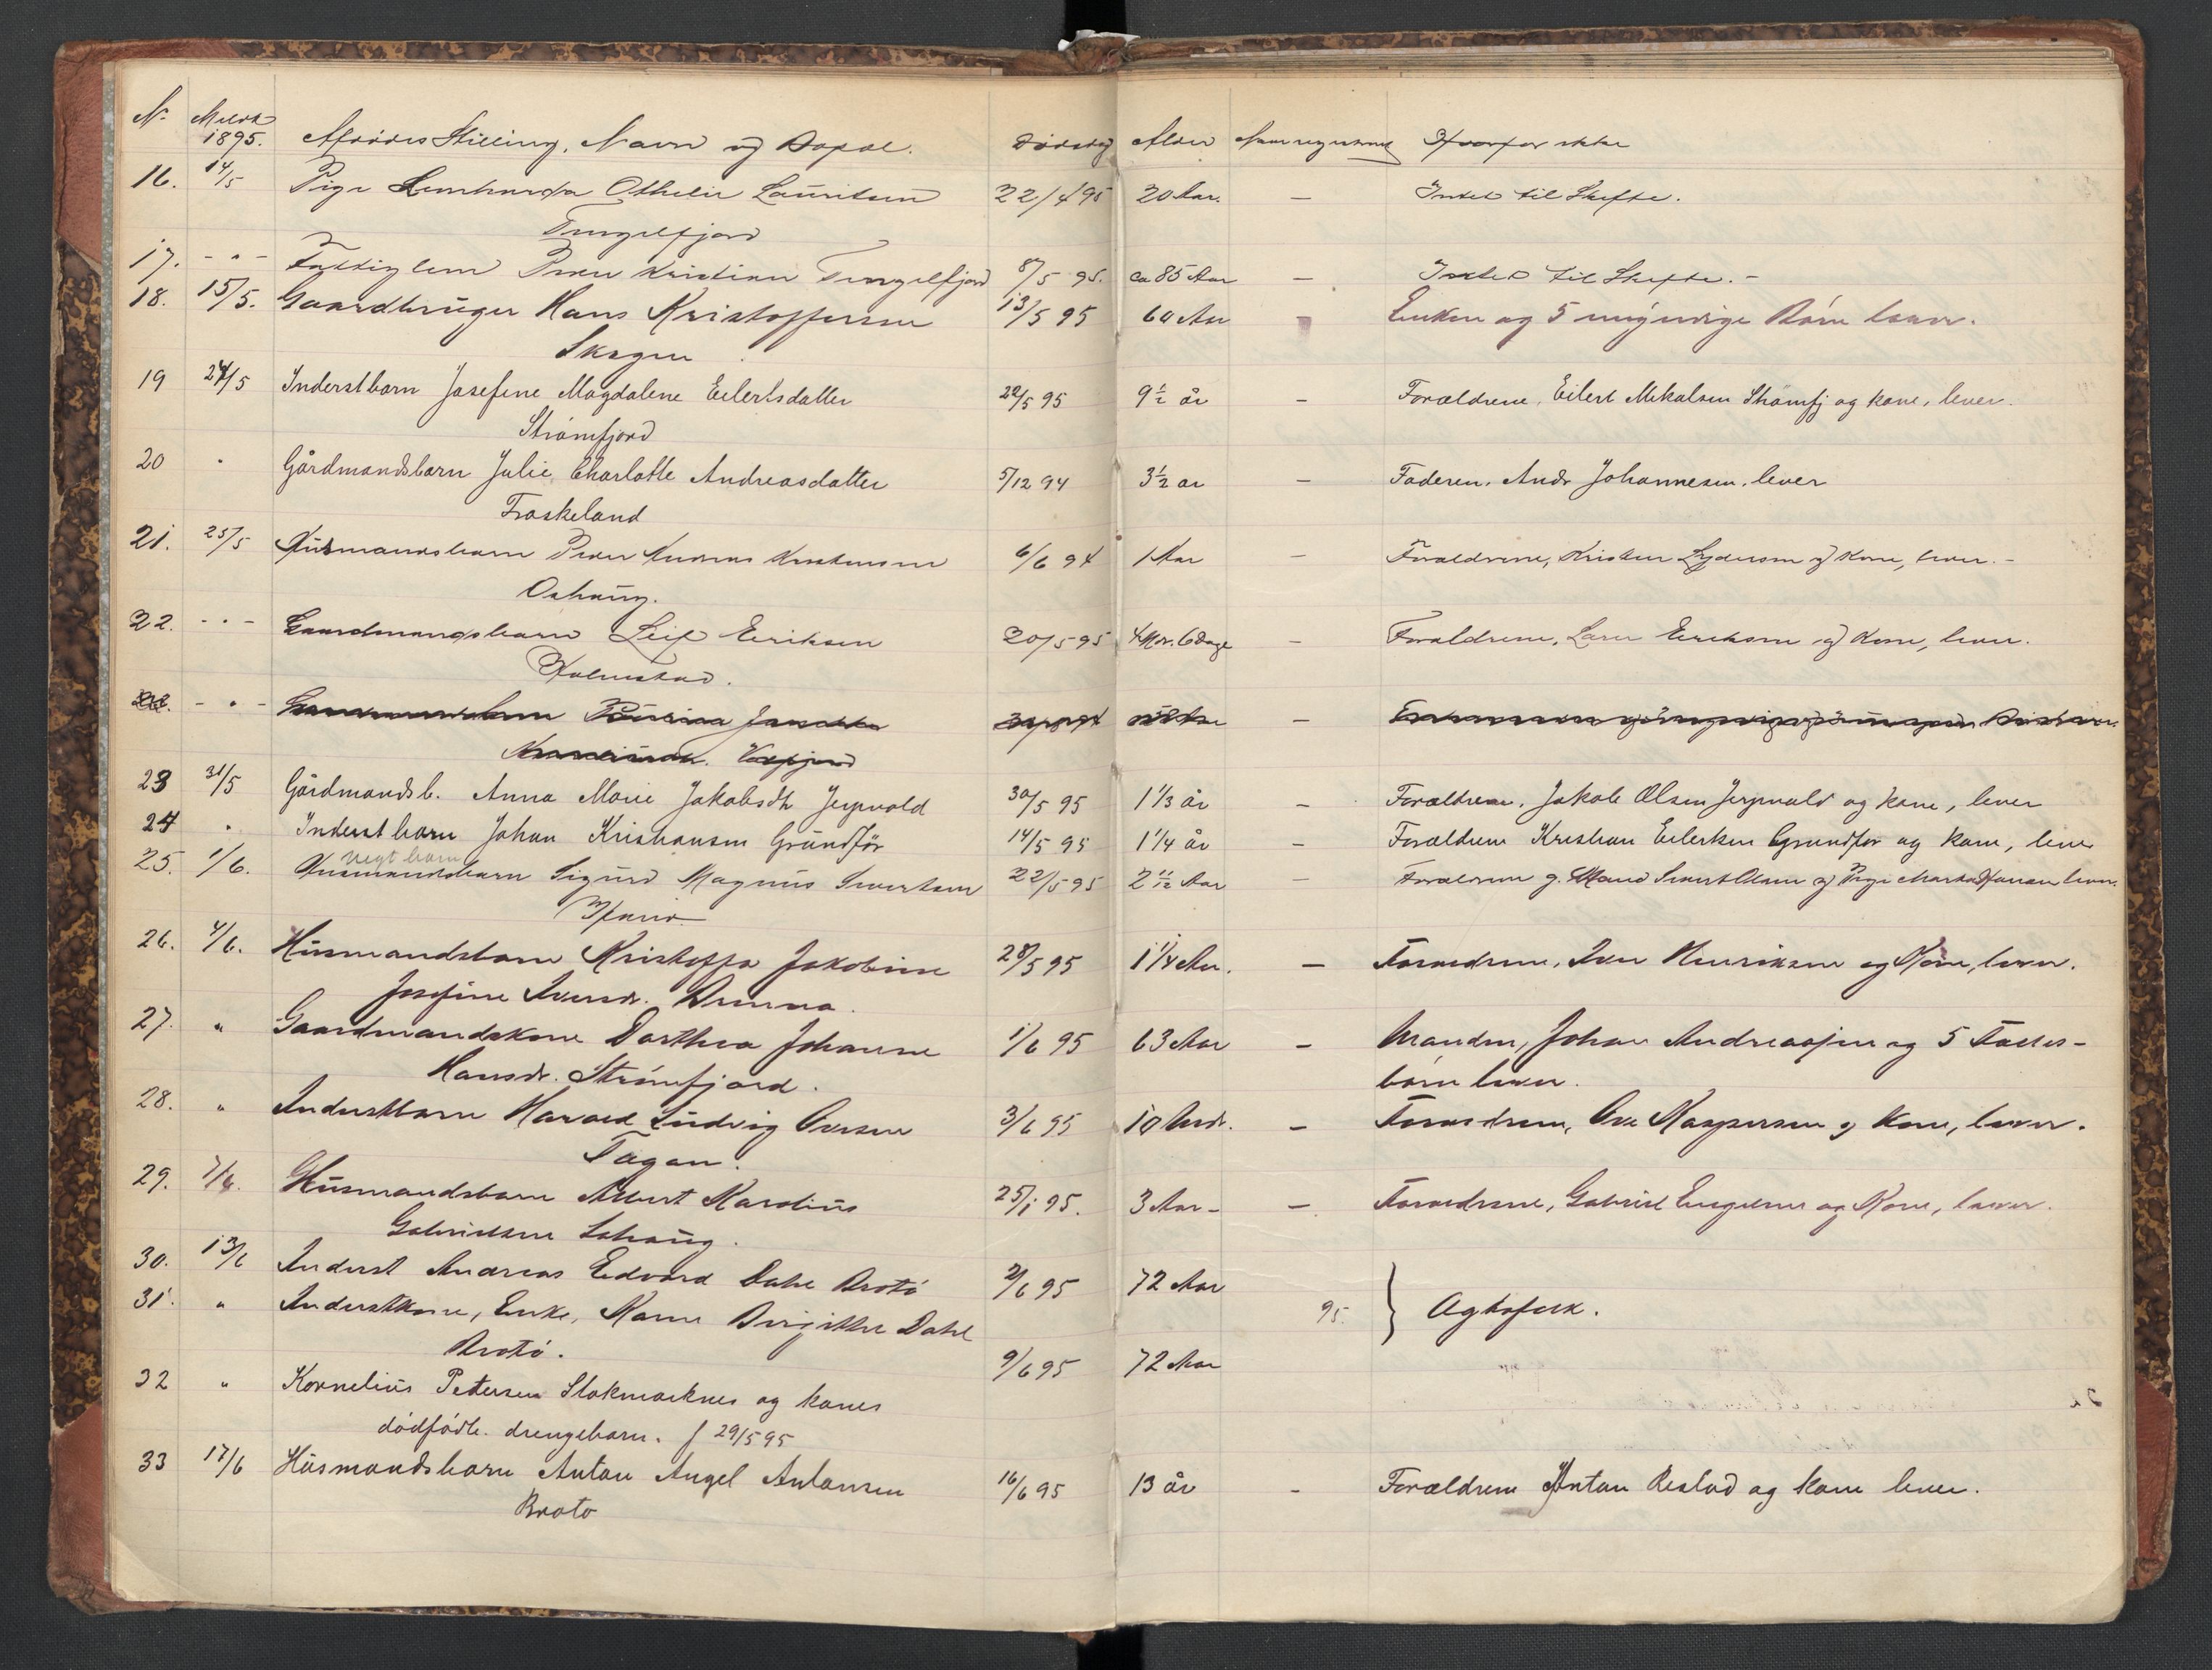 No Meldt 1895. Afdødes Stilling, Navn og Bopæl. Dødsdag Alder Hvorfor ikke
16. 14/5 Pige Othelie Lauritsen 22/4 95 20 Aar. — Intet til Skifte.
Tengelfjord
17. - " - Fattiglem Kristian Tengelfjord 8/5 95. ca 85 Aar — Intet til Skifte. -
18. 15/5. Gaardbruger Hans Kristoffersen 13/5 95 60 Aar Enken og 5 umyndige Børn lever.
Skagen
19 24/5 Inderstbarn Josefine Magdalene Eilertsdatter 22/5 95 9 1/2 år - Forældrene, Eilert Mikalsen Strømfj og kone, lever.
Strømfjord
20 " Gårdmandsbarn Julie Charlotte Andreasdatter 5/12 94 3 1/2 år — Faderen, Andr Johannesen, lever
Fraskeland
21. 25/5 Husmandsbarn Peder Kristensen 6/6 94 1 Aar — Forældrene, Kristen og Kone, lever. -
22. - " - Gaardmandsbarn Leif Eriksen 20/5 95 4 Mdr. 6 dage — Forældrene, Eriksen og Kone, lever.
Holmstad.
- " - —
23 31/5 Gårdmandsb. Anna Marie Jakobsdtr Jerpvold 30/5 95 1 1/3 år — Forældrene, Jakob Olsen Jerpvold og kone, lever
24 " Inderstbarn Johan Kristiansen Grundfør 14/5 95 1 1/4 år — Forældrene Kristian Eilertsen Grundfør og kone, lever
25. 1/6. Husmandsbarn Sigurd Magnus Sivertsen 22/5 95 2 11/12 Aar — Forældrene g. Mand Sivert Olsen og Pige Hansen lever.
26. 4/6. Husmandsbarn Kristoffa Jakobine 28/5 95 1 1/4 Aar. — Forældrene, Iver Henriksen og Kone, lever.
Josefine Iversdr.
27. " Gaardmandskone Dorthea Johanne 1/6 95 63 Aar — Manden, Johan Andreassen og 5 Fælles-
Hansdr. Strømfjord. børn lever.
28. " Inderstbarn Harald Ludvig Ovesen 3/6 95 10 Mdr. — Forældrene, Ove Kaspersen og Kone, lever.
29. 7/6. Husmandsbarn Albert Karolius 25/1 95. 3 Aar - — Forældrene, Gabriel og Kone, lever.
Gabrielsen
30. 13/6 Inderst Andreas Edvard Dahl Brotø 2/6 95 72 Aar
31. " Inderstkone, Enke, Karen Birgitte Dahl 95. }
Brotø. 9/6 95 72 Aar
32 " Kornelius Petersen Stokmarknes og kones
dødfødte drengebarn. f 29/5 95
33 17/6 Husmandsbarn Anton Angel Antonsen 16/6 95 13 år - Forældrene Anton og kone lever.
Brotø